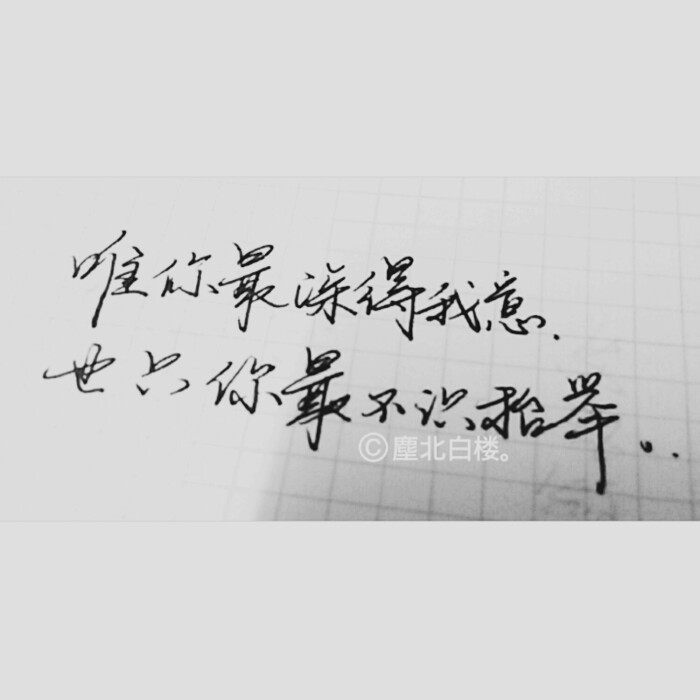 唯你最深得我意.
也只你最不识抬举。..
©塵北白楼。